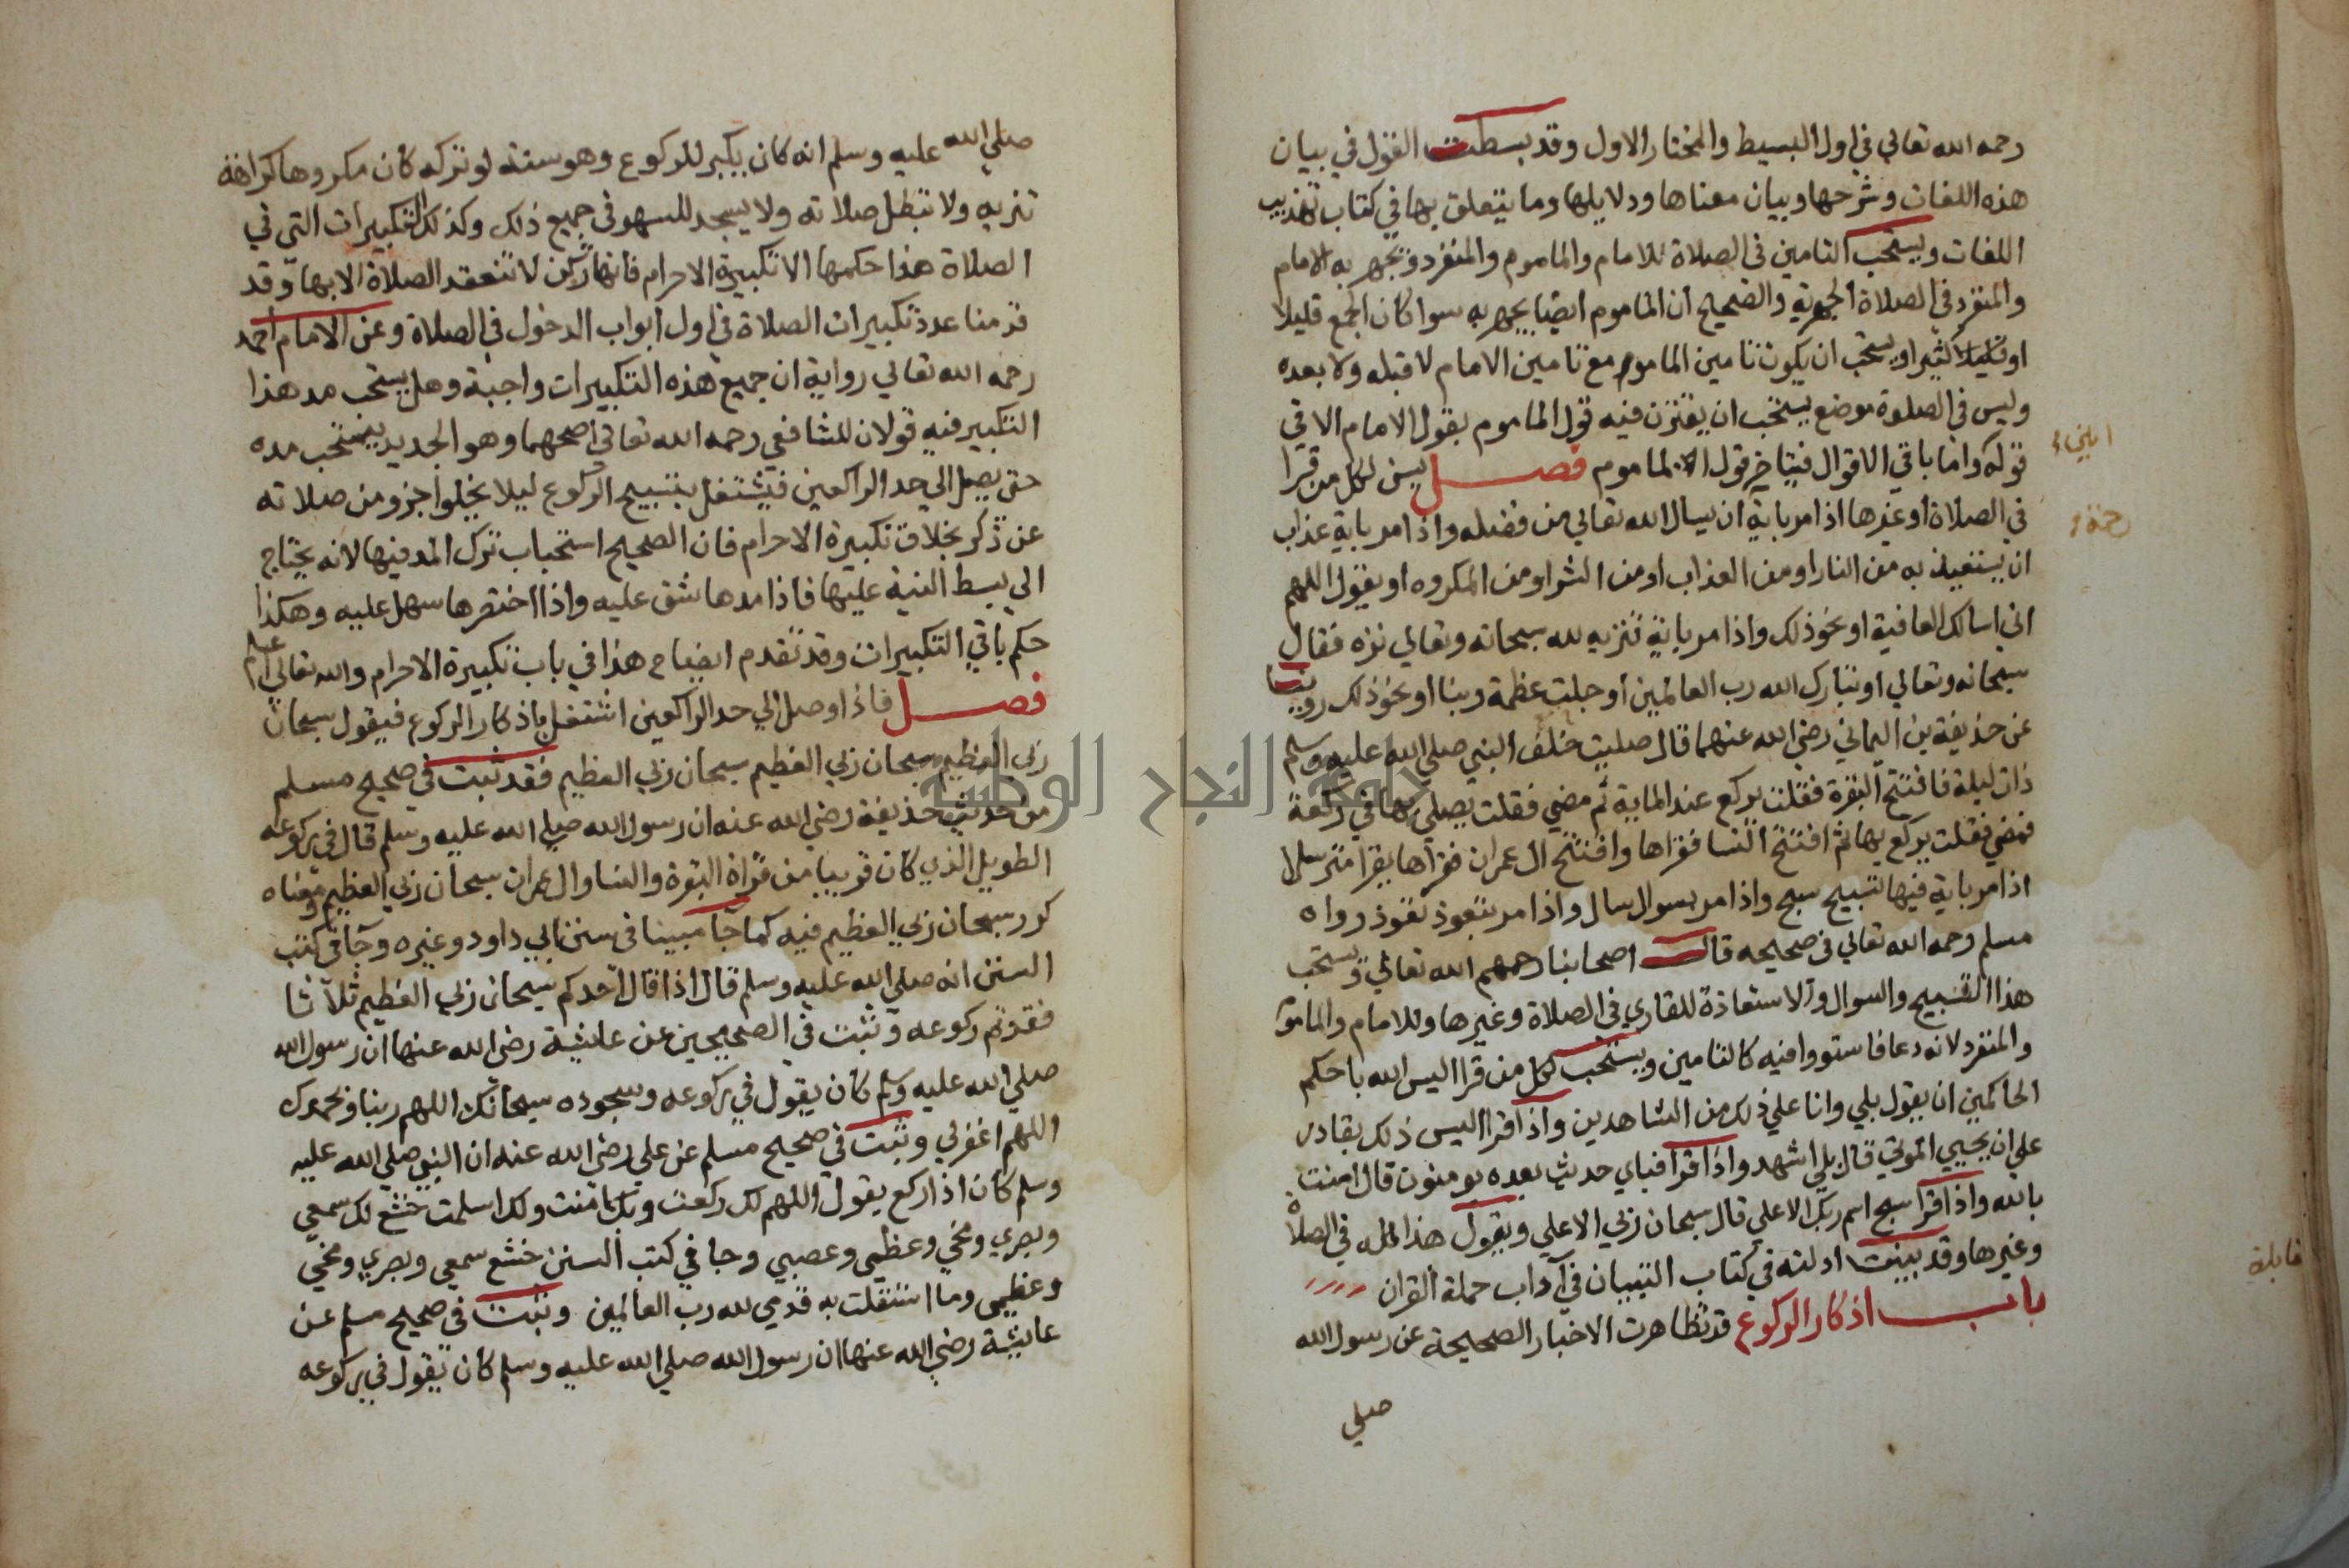 رحمه الله تعالي في اول البسيط والمختار الاول وقد بسطت القول في بيان
هذه اللغات وشرحها وبيان معناها ودلايلها وما يتعلق بها في كتاب تهذيب
اللغات ويستحب التامين في الصلاة للامام والماموم والمنفرد ويجهر به الامام
والمنفرد في الصلاة الجهرية والصحيح ان الماموم ايضا يجهر به سوا كان الجمع قليلا
او كثيرا ويستحب ان يكون تامين الماموم مع تامين الامام لا قبله ولا بعده
وليس في الصلوة موضع يستحب ان يقترن فيه قول الماموم بقول الامام الا في
قوله واما باقي الاقوال فيتاخر قول الماموم فصل يسن لكل من قرا
في الصلاة او غيرها اذا مر باية ان يسال الله تعالي من فضله واذا مر باية عذاب
ان يستعيذ به من النار او من العذاب او من الشر او من المكروه او يقول اللهم
اني اسالك العافية او نحو ذلك واذا مر باية تنزيه لله سبحانه وتعالي نزه فقال
سبحانه وتعالي او تبارك الله رب العالمين او جلت عظمة ربنا او نحو ذلك روينا
عن حذيفة بن اليماني رضي الله عنهما قال صليت خلف النبي صلي الله عليه وسلم
ذات ليلة فافتتح البقرة فقلت يركع عند الماية ثم مضي فقلت يصلي بها في ركعة
فمضي فقلت يركع بها ثم افتتح النسا فقراها وافتتح ال عمران فقراها يقرا مترسلا
اذا مر باية فيها تسبيح سبح واذا مر بسوال سال واذا مر بتعوذ تعوذ رواه
مسلم رحمه الله تعالي في صحيحه قال اصحابنا رحمهم الله تعالي ويستحب
هذا التسبيح والسوال والاستعاذة للقاري في الصلاة وغيرها وللامام والماموم
والمنفرد لانه دعا فاستووا فيه كالتامين ويستحب لكل من قرا اليس الله باحكم
الحاكمين ان يقول بلي وانا علي ذلك من الشاهدين واذا قرا اليس ذلك بقادر
علي ان يحيي الموتي قال بلي اشهد واذا قرا فباي حديث بعده يومنون قال امنت
بالله واذا قرا سبح اسم ربك الاعلي قال سبحان ربي الاعلي ويقول هذا كله في الصلاة
وغيرها وقد بينت ادلته في كتاب التبيان في آداب حملة القران
باب اذكار الركوع قد تظاهرت الاخبار الصحيحة عن رسول الله
صلي
صلي الله عليه وسلم انه كان يكبر للركوع وهو سنة لو تركه كان مكروها كراهة
تنزيه ولا تبطل صلاته ولا يسجد للسهو في جميع ذلك وكذلك التكبيرات التي في
الصلاة هذا حكمها الا تكبيرة الاحرام فانها ركن لا تنعقد الصلاة الا بها وقد
قدمنا عدد تكبيرات الصلاة في اول ابواب الدخول في الصلاة وعن الامام احمد
رحمه الله تعالي رواية ان جميع هذه التكبيرات واجبة وهل يستحب مد هذا
التكبير فيه قولان للشافعي رحمه الله تعالي اصحهما وهو الجديد يستحب مده
حتي يصل الي حد الراكعين فيشتغل بتسبيح الركوع ليلا يخلوا جزو من صلاته
عن ذكر بخلاف تكبيرة الاحرام فان الصحيح استحباب ترك المد فيها لانه يحتاج
الي بسط النية عليها فاذا مدها شق عليه واذا اختصرها سهل عليه وهكذا
حكم باقي التكبيرات وقد تقدم ايضاح هذا في باب تكبيرة الاحرام والله تعالي اعلم
فصل فاذا وصل الي حد الراكعين اشتغل باذكار الركوع فيقول سبحان
ربي العظيم سبحان ربي العظيم سبحان ربي العظيم فقد ثبت في صحيح مسلم
من حديث حذيفة رضي الله عنه ان رسول الله صلي الله عليه وسلم قال في ركوعه
الطويل الذي كان قريبا من قراة البقرة والنسا وال عمران سبحان ربي العظيم ومعناه
كرر سبحان ربي العظيم فيه كما جا مبينا في سنن ابي داود وغيره وجا في كتب
السنن انه صلي الله عليه وسلم قال اذا قال احدكم سبحان ربي العظيم ثلاثا
فقد تم ركوعه وثبت في الصحيحين عن عايشة رضي الله عنها ان رسول الله
صلي الله عليه وسلم كان يقول في ركوعه وسجوده سبحانك اللهم ربنا وبحمدك
اللهم اغفر لي وثبت في صحيح مسلم عن علي رضي الله عنه ان النبي صلي الله عليه
وسلم كان اذا ركع يقول اللهم لك ركعت وبك امنت ولك اسلمت خشع لك سمعي
وبصري ومخي وعظمي وعصبي وجا في كتب السنن خشع سمعي وبصري ومخي
وعظمي وما استقلت به قدمي لله رب العالمين وثبت في صحيح مسلم عن
عايشة رضي الله عنها ان رسول الله صلي الله عليه وسلم كان يقول في ركوعه
جامعة النجاح الوطنية